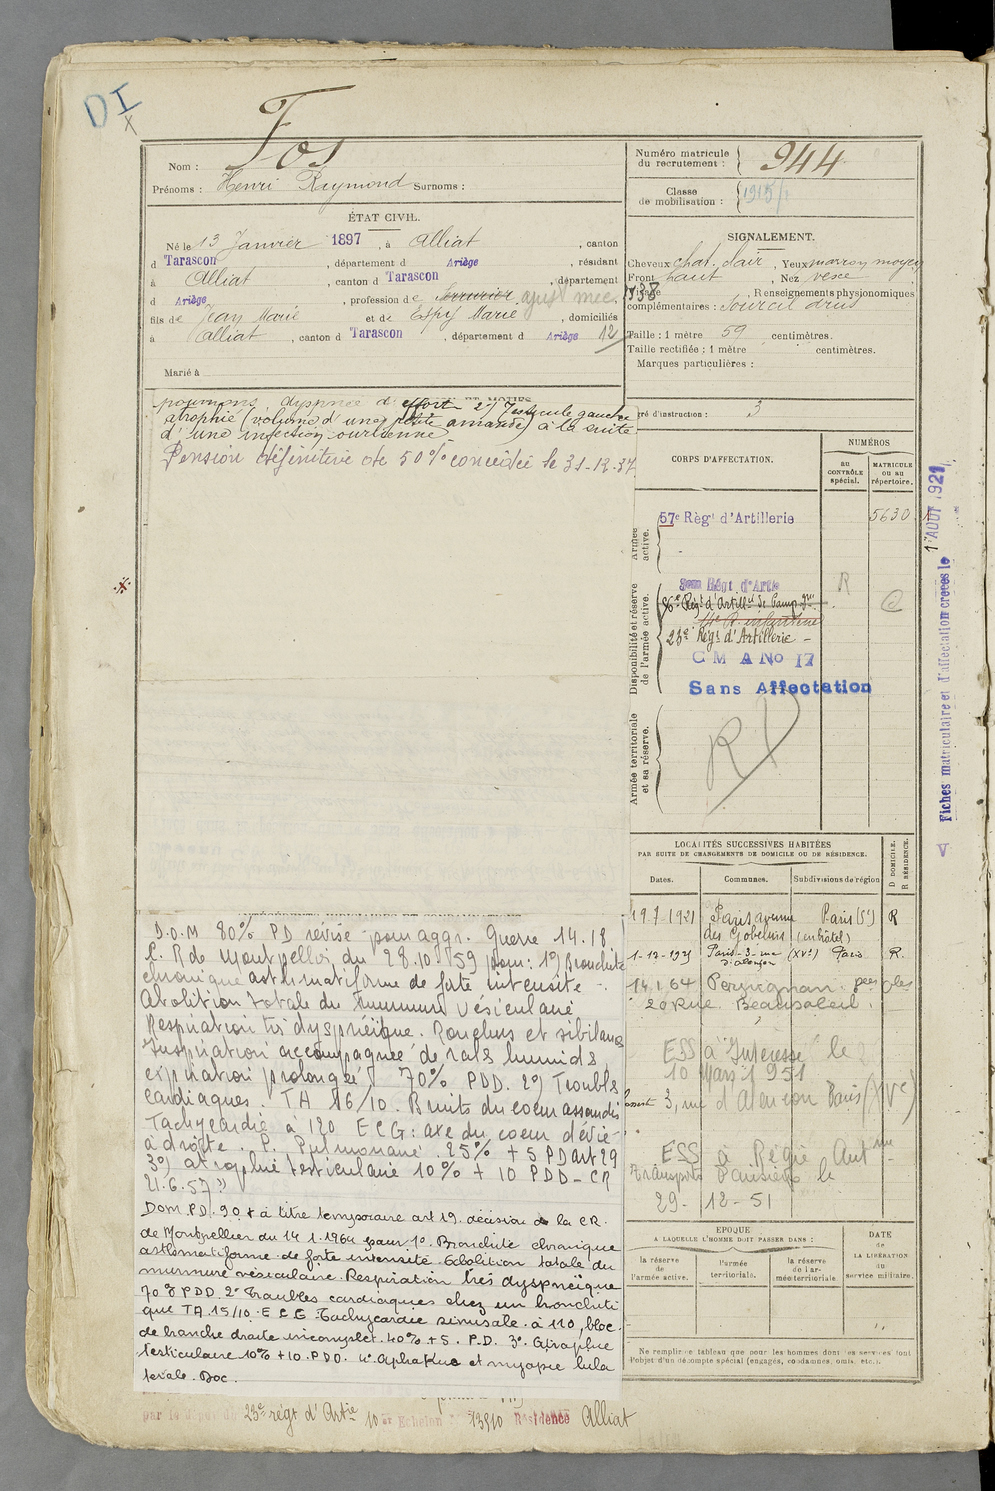 DI
x
Nom : Fos
Prénoms : Henri Raymond Surnoms :
Numéro matricule du recrutement : 944
Classe de mobilisation : 1915/
ÉTAT CIVIL.
Né le 13 Janvier 1897, à Alliat, canton
d Tarascon, département d Ariège, résidant
à Alliat, canton d Tarascon, département
d Ariège, profession de serrurier ajust mec.
fils de Jean Marie et de Espy Marie, domiciliés
à Alliat, canton d Tarascon, département d Ariège 12
Marié à
SIGNALEMENT.
Cheveux chat. clair, Yeux marron moyen
Front haut, Nez vexe
Renseignements physionomiques
complémentaires : Sourcil drus
Taille : 1 mètre 59 centimètres.
Taille rectifiée : 1 mètre centimètres.
Marques particulières :
poumons, dyspnée d'effort 2) Testicule gauche
atrophié (volume d'une petite amande) à la suite
d'une infection ourlienne
Pension définitive de 50% concédée le 31-12-37
ré d'instruction : 3
CORPS D'AFFECTATION.
NUMÉROS
au contrôle spécial.
MATRICULE ou au répertoire.
Armée active.
57e Régt d'Artillerie 5630
Disponibilité et réserve de l'armée active.
Régt d'Artie
R
Régt d'Artill
23e Régt d'Artillerie
C M A No 17
Sans Affectation
Armée territoriale et sa réserve.
Fiches matriculaire et d'affectation créées le 1 AOUT 1921
V
LOCALITÉS SUCCESSIVES HABITÉES
PAR SUITE DE CHANGEMENTS DE DOMICILE OU DE RÉSIDENCE.
Dates. Communes. Subdivisions de région D DOMICILE. R RÉSIDENCE.
19.7.1921 Paris avenue Paris (5e) R
des Gobelins (en hôtel)
1-12-1921 Paris-3-rue (XVe) Paris R.
d'alençon
14.1.64 Perpignan
20 Rue Beausoleil
ESS à "Interessé" le
10 Mars 1951
3, rue d'Alençon Paris (XVe)
ESS à Régie Autme
Transports Parisiens le
29-12-51
D.O.M 80% PD révisé pour aggr. Guerre 14.18
C. R de Montpellier du 28.10.59 pour : 1°) Bronchite
chronique asthmatiforme de forte intensité -
Abolition totale du murmure vésiculaire
Respiration très dyspnéique. Ronchus et sibilances
Inspiration accompagnée de rales humides
expiration prolongée 70% PDD. 2°) Troubles
cardiaques. TA 16/10. Bruits du coeur assourdis
Tachycardie à 120 ECG : axe du coeur dévié
à droite. P. Pulmonaire. 25% + 5 PD art 29
3°) atrophie testiculaire 10% + 10 PDD - CR
21.6.57"
Dom. P.D. 90 + à titre temporaire art 19. décision de la CR.
de Montpellier du 14.1.1964 pour 1°. Bronchite chronique
asthmatiforme de forte intensité. Abolition totale du
murmure vésiculaire. Respiration très dyspnéique
70% PDD. 2° Troubles cardiaques chez un bronchiti
que TA 15/10. E C G Tachycardie sinusale à 110, bloc
de branche droite incomplet. 40% + 5. P.D. 3°. Atrophie
testiculaire 10% + 10. P.D.D. 4°. Aphakie et myopie bila
térale. Doc.
EPOQUE
A LAQUELLE L'HOMME DOIT PASSER DANS :
la réserve de l'armée active.
l'armée territoriale.
la réserve de l'armée territoriale.
DATE de LA LIBÉRATION du service militaire.
Ne remplir ce tableau que pour les hommes dont les services font
l'objet d'un décompte spécial (engagés, condamnés, omis, etc.).
par le dépôt du 23e régt d'Artie 10 er Echelon 13910 Résidence Alliat